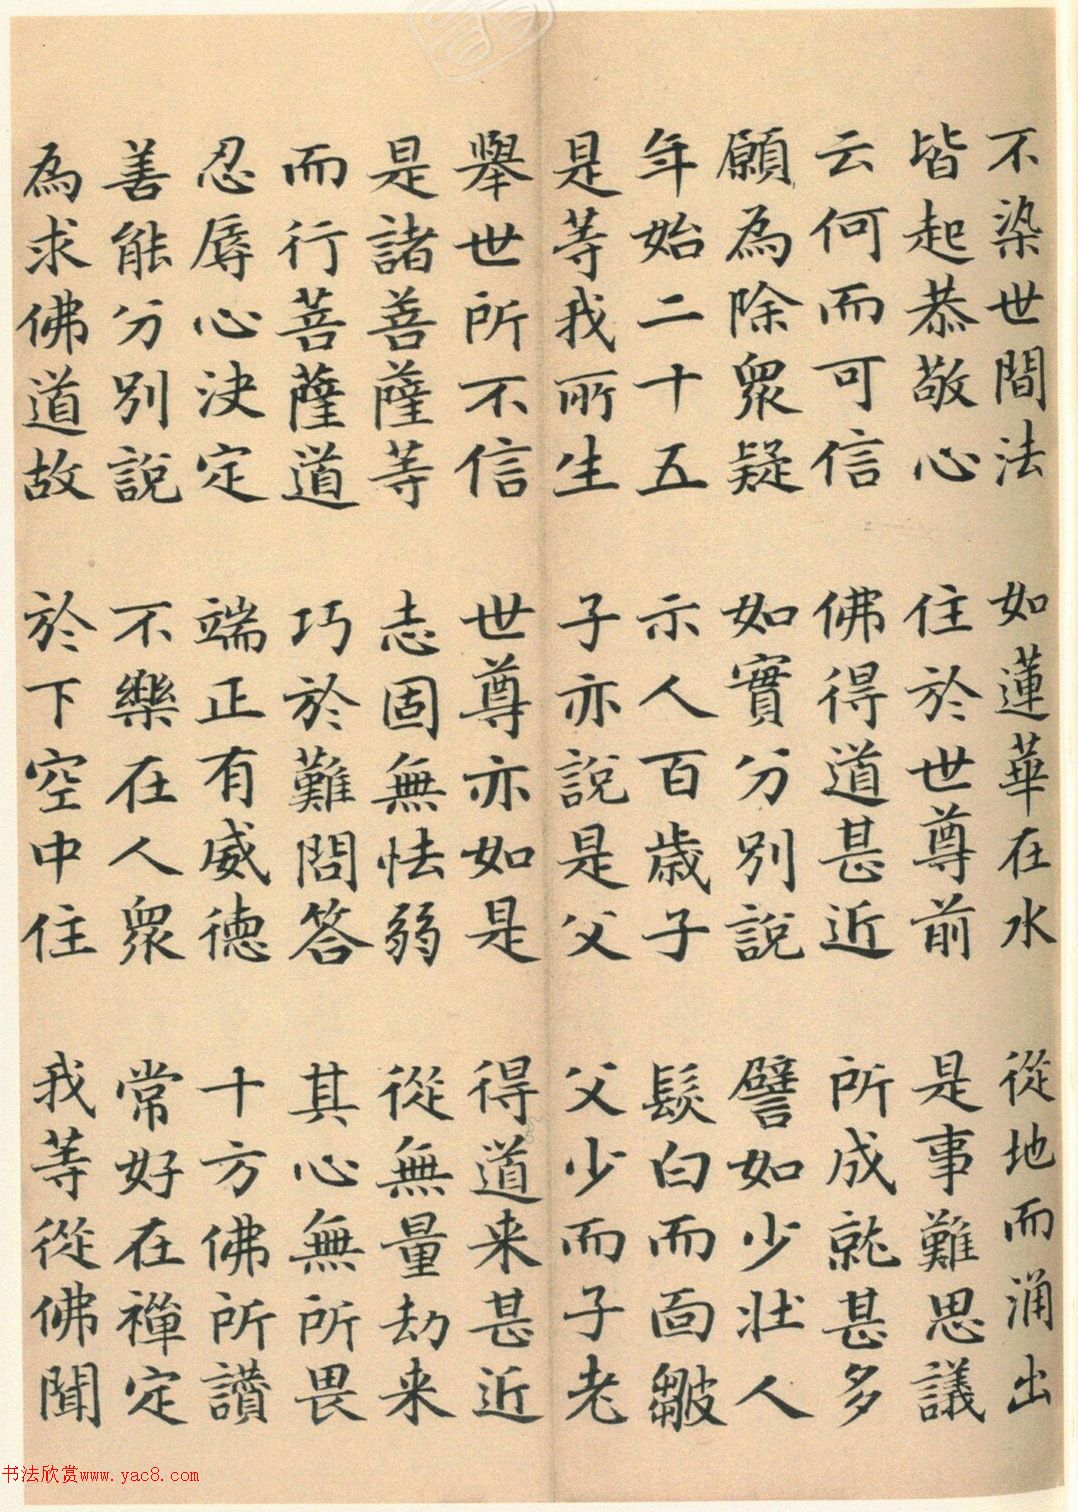 不染世間法　如蓮華在水　從地而涌出
皆起恭敬心　住於世尊前　是事難思議
云何而可信　佛得道甚近　所成就甚多
願為除眾疑　如實分別說　譬如少壯人
年始二十五　示人百歲子　髮白而面皺
是等我所生　子亦說是父　父少而子老
舉世所不信　世尊亦如是　得道来甚近
是諸菩薩等　志固無怯弱　從無量劫来
而行菩薩道　巧於難問答　其心無所畏
忍辱心決定　端正有威德　十方佛所讃
善能分別說　不樂在人眾　常好在禪定
為求佛道故　於下空中住　我等從佛聞
书法欣赏www.yac8.com